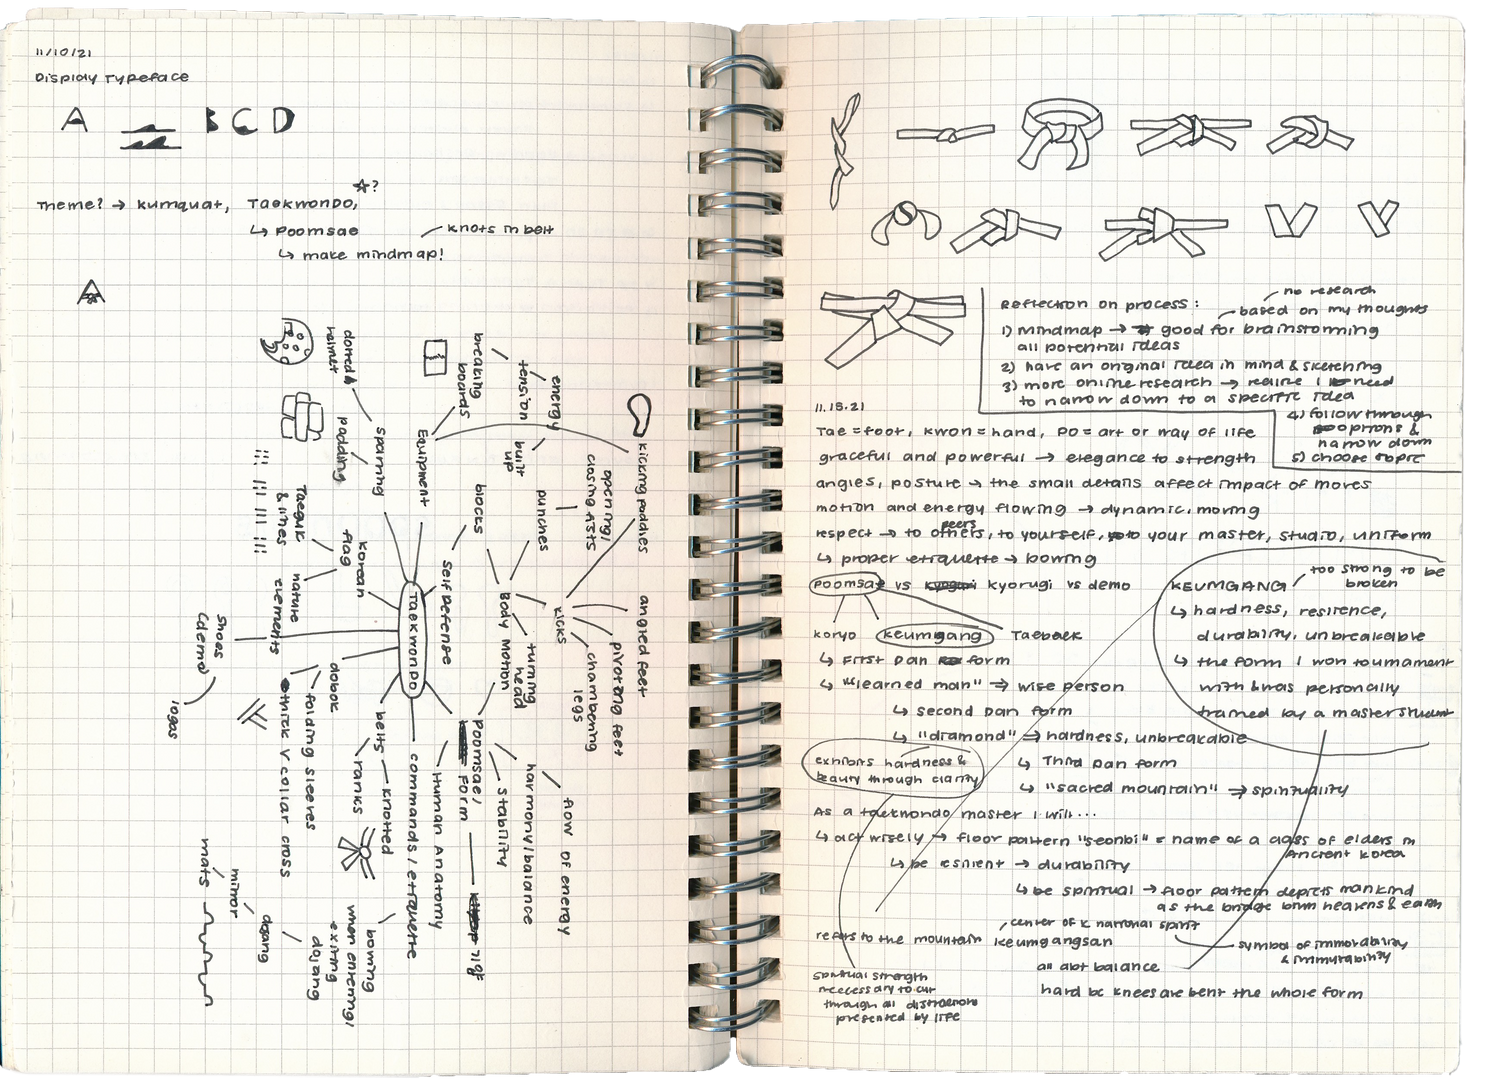 11/10/21
Display Typeface
A B C D
☆?
Theme? → kumquat, Taekwondo,
↳ Poomsae
knots in belt
↳ make mindmap!
A
dotted
helmet
padding
sparring
breaking
boards
tension
energy
built
up
Equipment
kicking paddles
opening/
closing fists
punches
blocks
Self Defense
Body Motion
kicks
angled feet
pivoting feet
chambering
legs
turning
head
Taegeuk
& lines
Korean
flag
nature
elements
TAEKWONDO
Shoes
(demo)
logos
dobok
folding sleeves
thick V collar cross
belts
knotted
ranks
commands/etiquette
Human Anatomy
Poomsae/
Form
stability
harmony/balance
flow of energy
bowing
when entering/
exiting
dojang
dojang
mirror
mats
Reflection on process:
no research
based on my thoughts
1) mindmap → good for brainstorming
all potential ideas
2) have an original idea in mind & sketching
3) more online research → realize I need
to narrow down to a specific idea
4) follow through
options &
narrow down
5) choose topic
11.15.21
Tae = foot, kwon = hand, Do = art or way of life
graceful and powerful → elegance to strength
angles, posture → the small details affect impact of moves
motion and energy flowing → dynamic, moving
peers
respect → to others, to yourself, to your master, studio, uniform
↳ proper etiquette → bowing
poomsae vs kyorugi vs demo
koryo keumgang Taebaek
↳ First Dan form
↳ "learned man" → wise person
↳ second Dan form
↳ "diamond" → hardness, unbreakable
↳ Third Dan form
↳ "sacred mountain" → spirituality
exhibits hardness &
beauty through clarity
KEUMGANG
too strong to be
broken
↳ hardness, resilience,
durability, unbreakable
↳ the form I won tournament
with & was personally
trained by a master student
As a taekwondo master I will...
↳ act wisely → floor pattern "seonbi" = name of a class of elders in
Ancient Korea
↳ be resilient → durability
↳ be spiritual → floor pattern depicts mankind
as the bridge btwn heavens & earth
center of K national spirit
refers to the mountain Keumgangsan
symbol of immovability
& immutability
all abt balance
hard bc knees are bent the whole form
spiritual strength
necessary to cut
through all distractions
presented by life